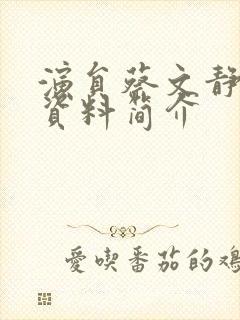 演員蔡文靜
資料簡介
愛喫番茄的鴻